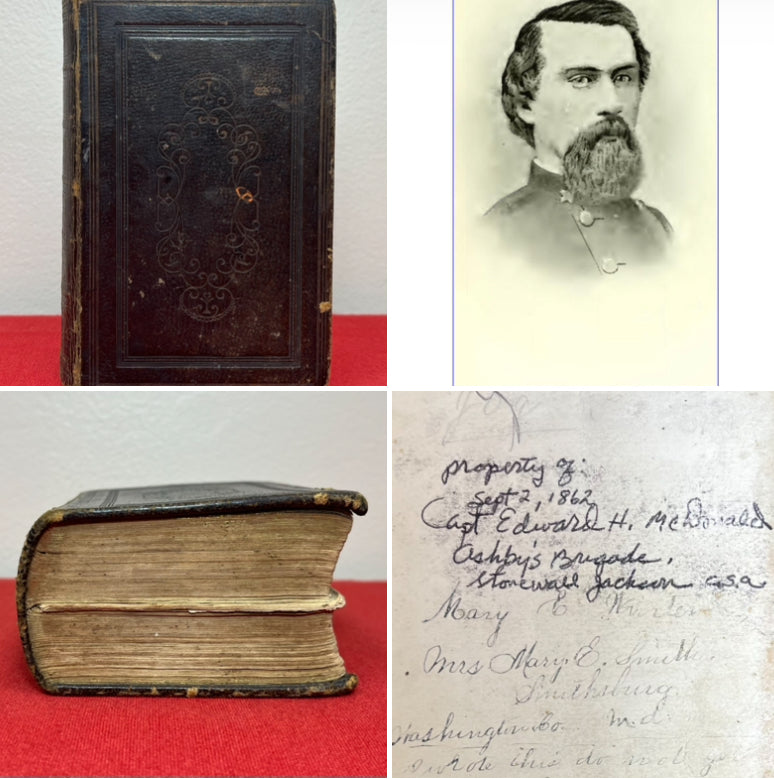 property of:
Sept 2, 1862
Capt Edward H. McDonald
Ashby's Brigade,
Stonewall Jackson C.S.a.
Mary E.
Mrs Mary. E. Smith
Smithsburg.
Washington Co. Md.
I wrote this do not